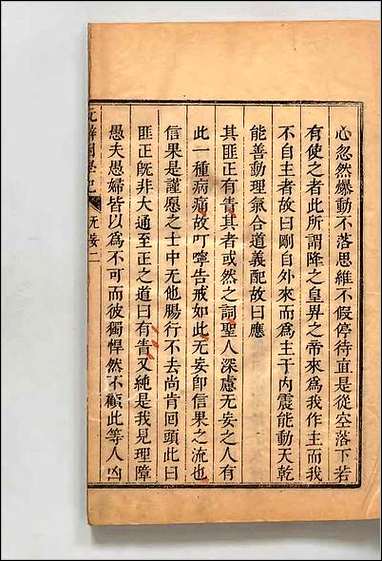 心忽然舉動不落思維不假停待直是從空落下若
有使之者此所謂降之皇畀之帝來爲我作主而我
不自主者故曰剛自外來而爲主于內震能動天乾
能善動理氣合道義配故曰應
其匪正有眚其者或然之詞聖人深慮无妄之人有
此一種病痛故叮嚀告戒如此无妄卽信果之流也
信果是謹愿之士中无他腸行不去尚肯回頭此曰
匪正旣非大通至正之道曰有眚又純是我見理障
愚夫愚婦皆以爲不可而彼獨悍然不顧此等人凶
无妄二